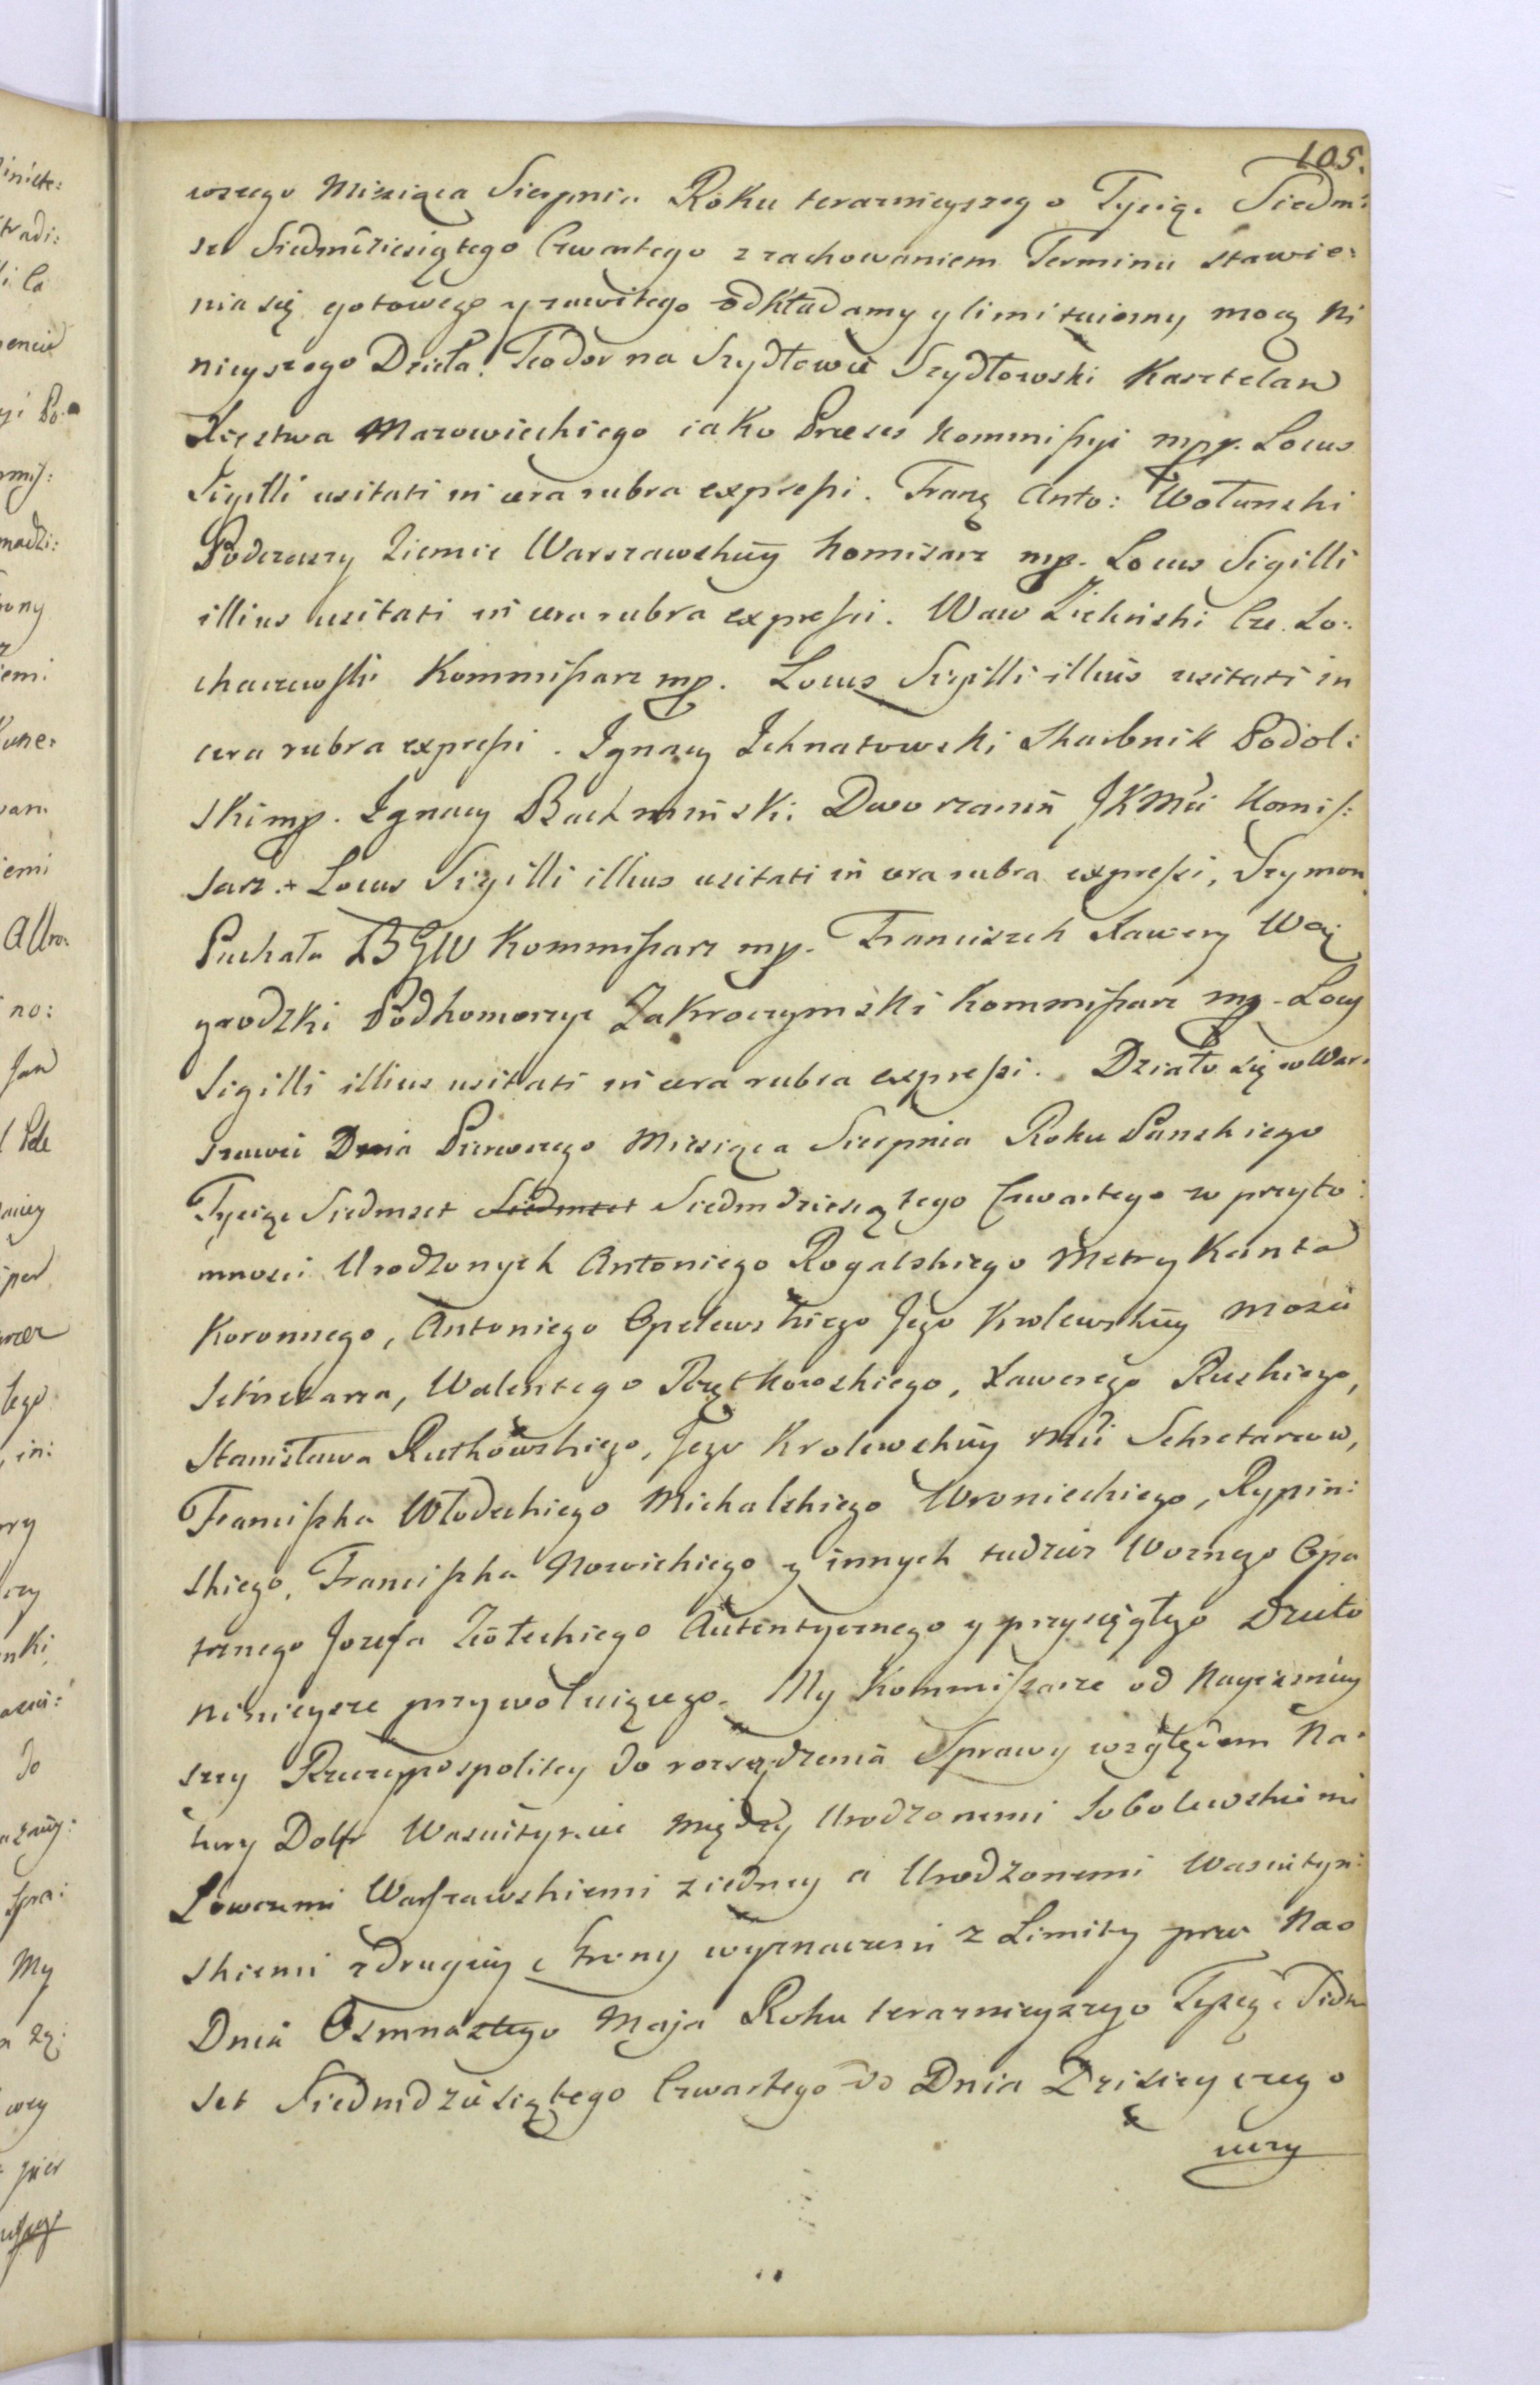 105.
wszego Miesiąca Sierpnia Roku teraznieyszego Tysiąc Siedm:
set Siedmdziesiątego Czwartego z zachowaniem Terminu stawie:
nia się gotowego y zawitego odkładamy y limituiemy, mocą Ni
nieyszego Dzieła. Teodor na Szydłowie Szydłowski Kasztelan
Xięstwa Mazowieckiego iako Prezes Kommissyi mpp. Locus
Sigilli usitati in cera rubra expressi. Franc Anto: Wołunski
Podczaszy Ziemie Warszawskiey Komisarz mp. Locus Sigilli
illius usitati in cera rubra expressi. Waw Zieliński Cze. So:
chaczewski Kommissarz mp. Locus Sigilli illius usitati in
cera rubra expressi. Ignacy Ichnatowski Skarbnik Podol:
ski mp. Ignacy Bachminski Dworzanin JKMci Komis:
sarz. Locus Sigilli illius usitati in cera rubra expressi, Szymon
Puchała BGW Kommissarz mp. Franciszek Xawery Wai
grodzki Podkomorzyc Zakroczymski Kommissarz mp. Locus
Sigilli illius usitati in cera rubra expressi. Działo się w War:
szawie Dnia Pierwszego Miesiąca Sierpnia Roku Panskiego
Tysiąc Siedmset Siedmset Siedmdziesiątego Czwartego w przyto:
mnosci Urodzonych Antoniego Rogalskiego Metrykanta
Koronnego, Antoniego Opelewskiego Jego Krolewskiey Mosci
Sekretarza, Walentego Rzętkowskiego, Xawerego Ruskiego,
Stanisława Rutkowskiego, Jego Krolewskiey Mci Sekretarzow,
Franciszka Włodeckiego Michalskiego Wronieckiego, Rypin:
skiego, Franciszka Nowickiego y innych tudzież Woznego Opa
trznego Jozefa Ziołeckiego Autentycznego y przysięgłego Dzieło
ninieysze przywołuiącego. My Kommissarze od Nayiasniey
szey Rzeczypospolitey do rozsądzenia Sprawy względem Na:
tury Dobr Wasiutynie między Urodzonemi Sobolewskiemi
Łowczemi Warszawskiemi z iedney a Urodzonemi Wasiutyn:
skiemi z drugiey strony wyznaczeni z Limity przez Nas
Dnia Osmnastego Maja Roku teraznieyszego Tysiąc Siedm
set Siedmdziesiątego Czwartego do Dnia Dzisieyszego
uczy